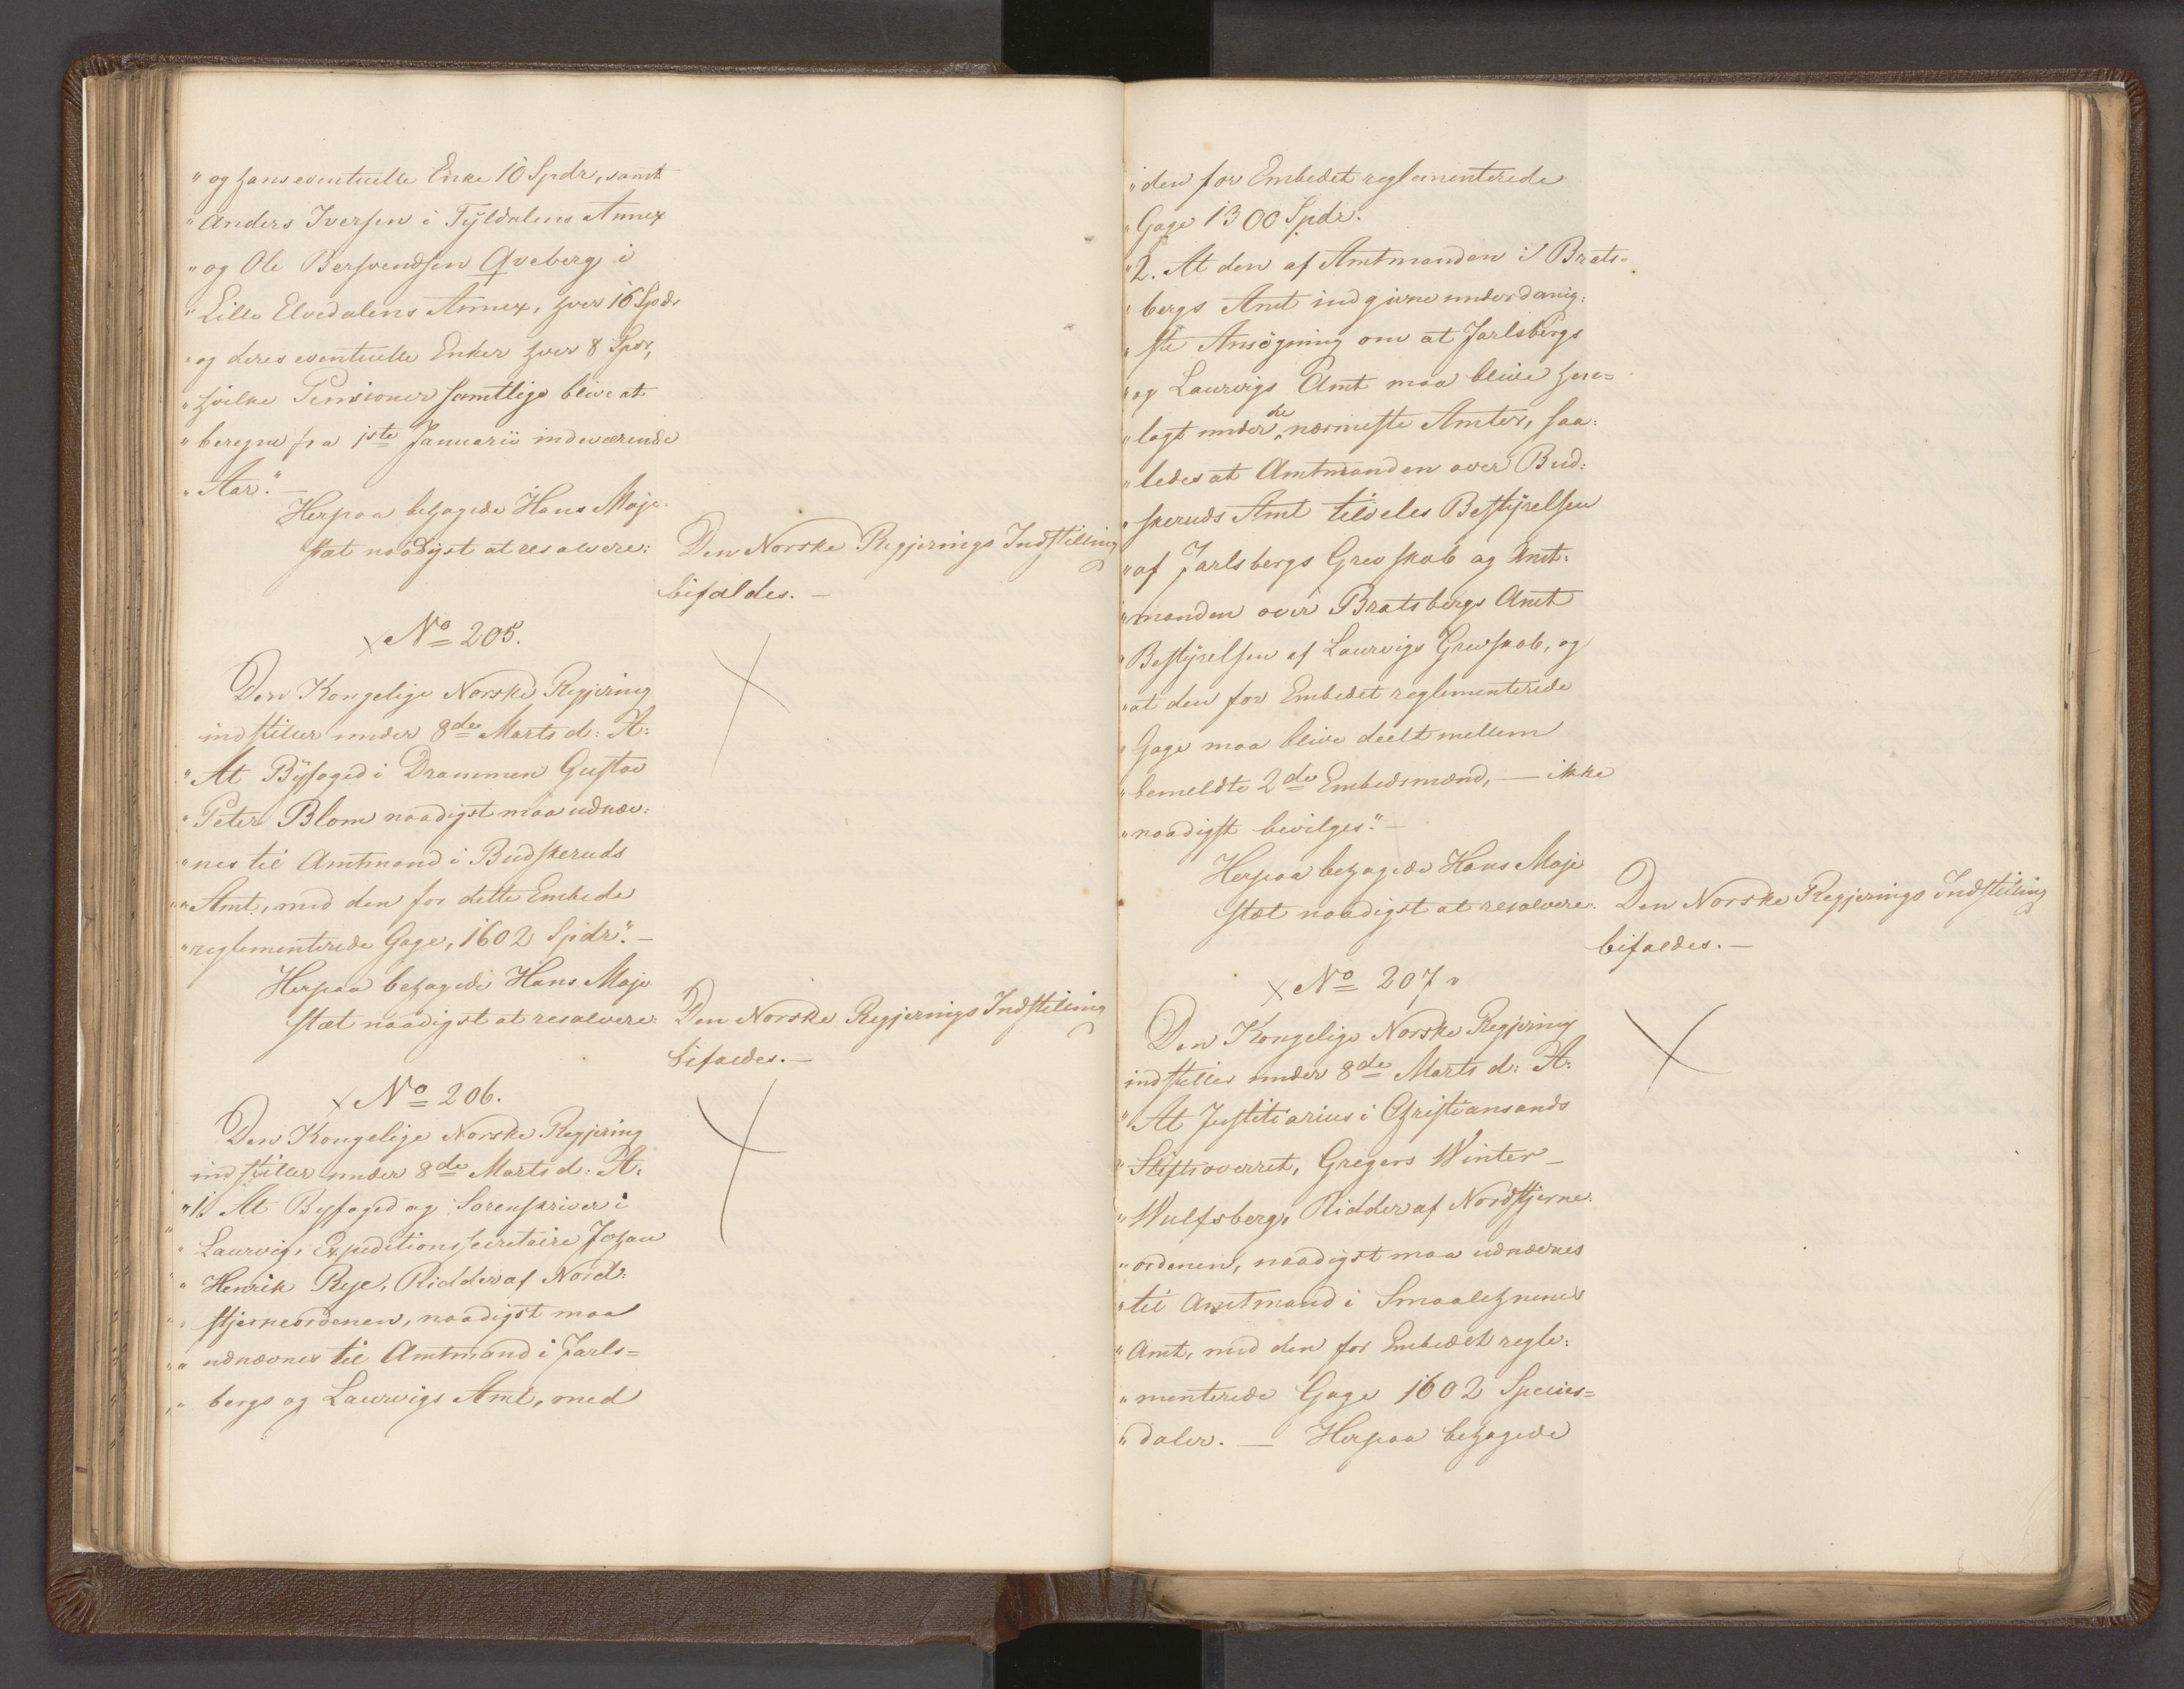 " og hans eventuelle Enke 10 Spdr, samt
" Anders Iversen i Tyldalens Annex
" og Ole Bersvendsen Qveberg i
" Lille Elvedalens Annex, hver 16 Spdr
" og deres eventuelle Enker hver 8 Spdr,
" hvilke Pensioner samtlige blive at
" beregne fra 1ste Januarii indeværende
" Aar." —
Herpaa behagede Hans Maje-
stæt naadigst at resolvere:
Den Norske Regjerings Indstilling
bifaldes. —
x No 205.
Den Kongelige Norske Regjering
indstiller under 8de Marts d: A:
" At Byfoged i Drammen Gustav
" Peter Blom naadigst maa udnæv:
" nes til Amtmand i Budskeruds
" Amt, med den for dette Embede
" reglementerede Gage, 1602 Spdr." —
Herpaa behagede Hans Maje
stæt naadigst at resolvere:
Den Norske Regjerings Indstilling
bifaldes. —
x No 206.
Den Kongelige Norske Regjering
indstiller under 8de Marts d: A:
" 1. At Byfoged og Sorenskriver i
" Laurvig, Expeditionssecretaire Johan
" Henrik Rye, Ridder af Nord:
" stjerneordenen, naadigst maa
" udnævnes til Amtmand i Jarls=
" bergs og Laurvigs Amt, med
" den for Embedet reglementerede
" Gage 1300 Spdr.
" 2. At den af Amtmanden i Brats-
" bergs Amt indgivne underdanig:
" ste Ansøgning om at Jarlsbergs
" og Laurvigs Amt maa blive hen=
" lagt under de nærmeste Amter, saa:
" ledes at Amtmanden over Bud:
" skeruds Amt tildeles Bestyrelsen
" af Jarlsbergs Grevskab og Amt:
" manden over Bratsbergs Amt
" Bestyrelsen af Laurvigs Grevskab, og
" at den for Embedet reglementerede
" Gage maa blive deelt mellem
" bemeldte 2de Embedsmænd, — ikke
" naadigst bevilges." —
Herpaa behagede Hans Maje
stæt naadigst at resolvere:
Den Norske Regjerings Indstilling
bifaldes. —
x No 207.
Den Kongelige Norske Regjering
indstiller under 8de Marts d: A:
" At Justitiarius i Christiansands
" Stiftsoverret, Gregers Winter-
" Wulfsberg, Ridder af Nordstjerne:
" ordenen, naadigst maa udnævnes
" til Amtmand i Smaalehnenes
" Amt, med den for Embedet regle:
" menterede Gage 1602 Species=
" daler. — Herpaa behagede